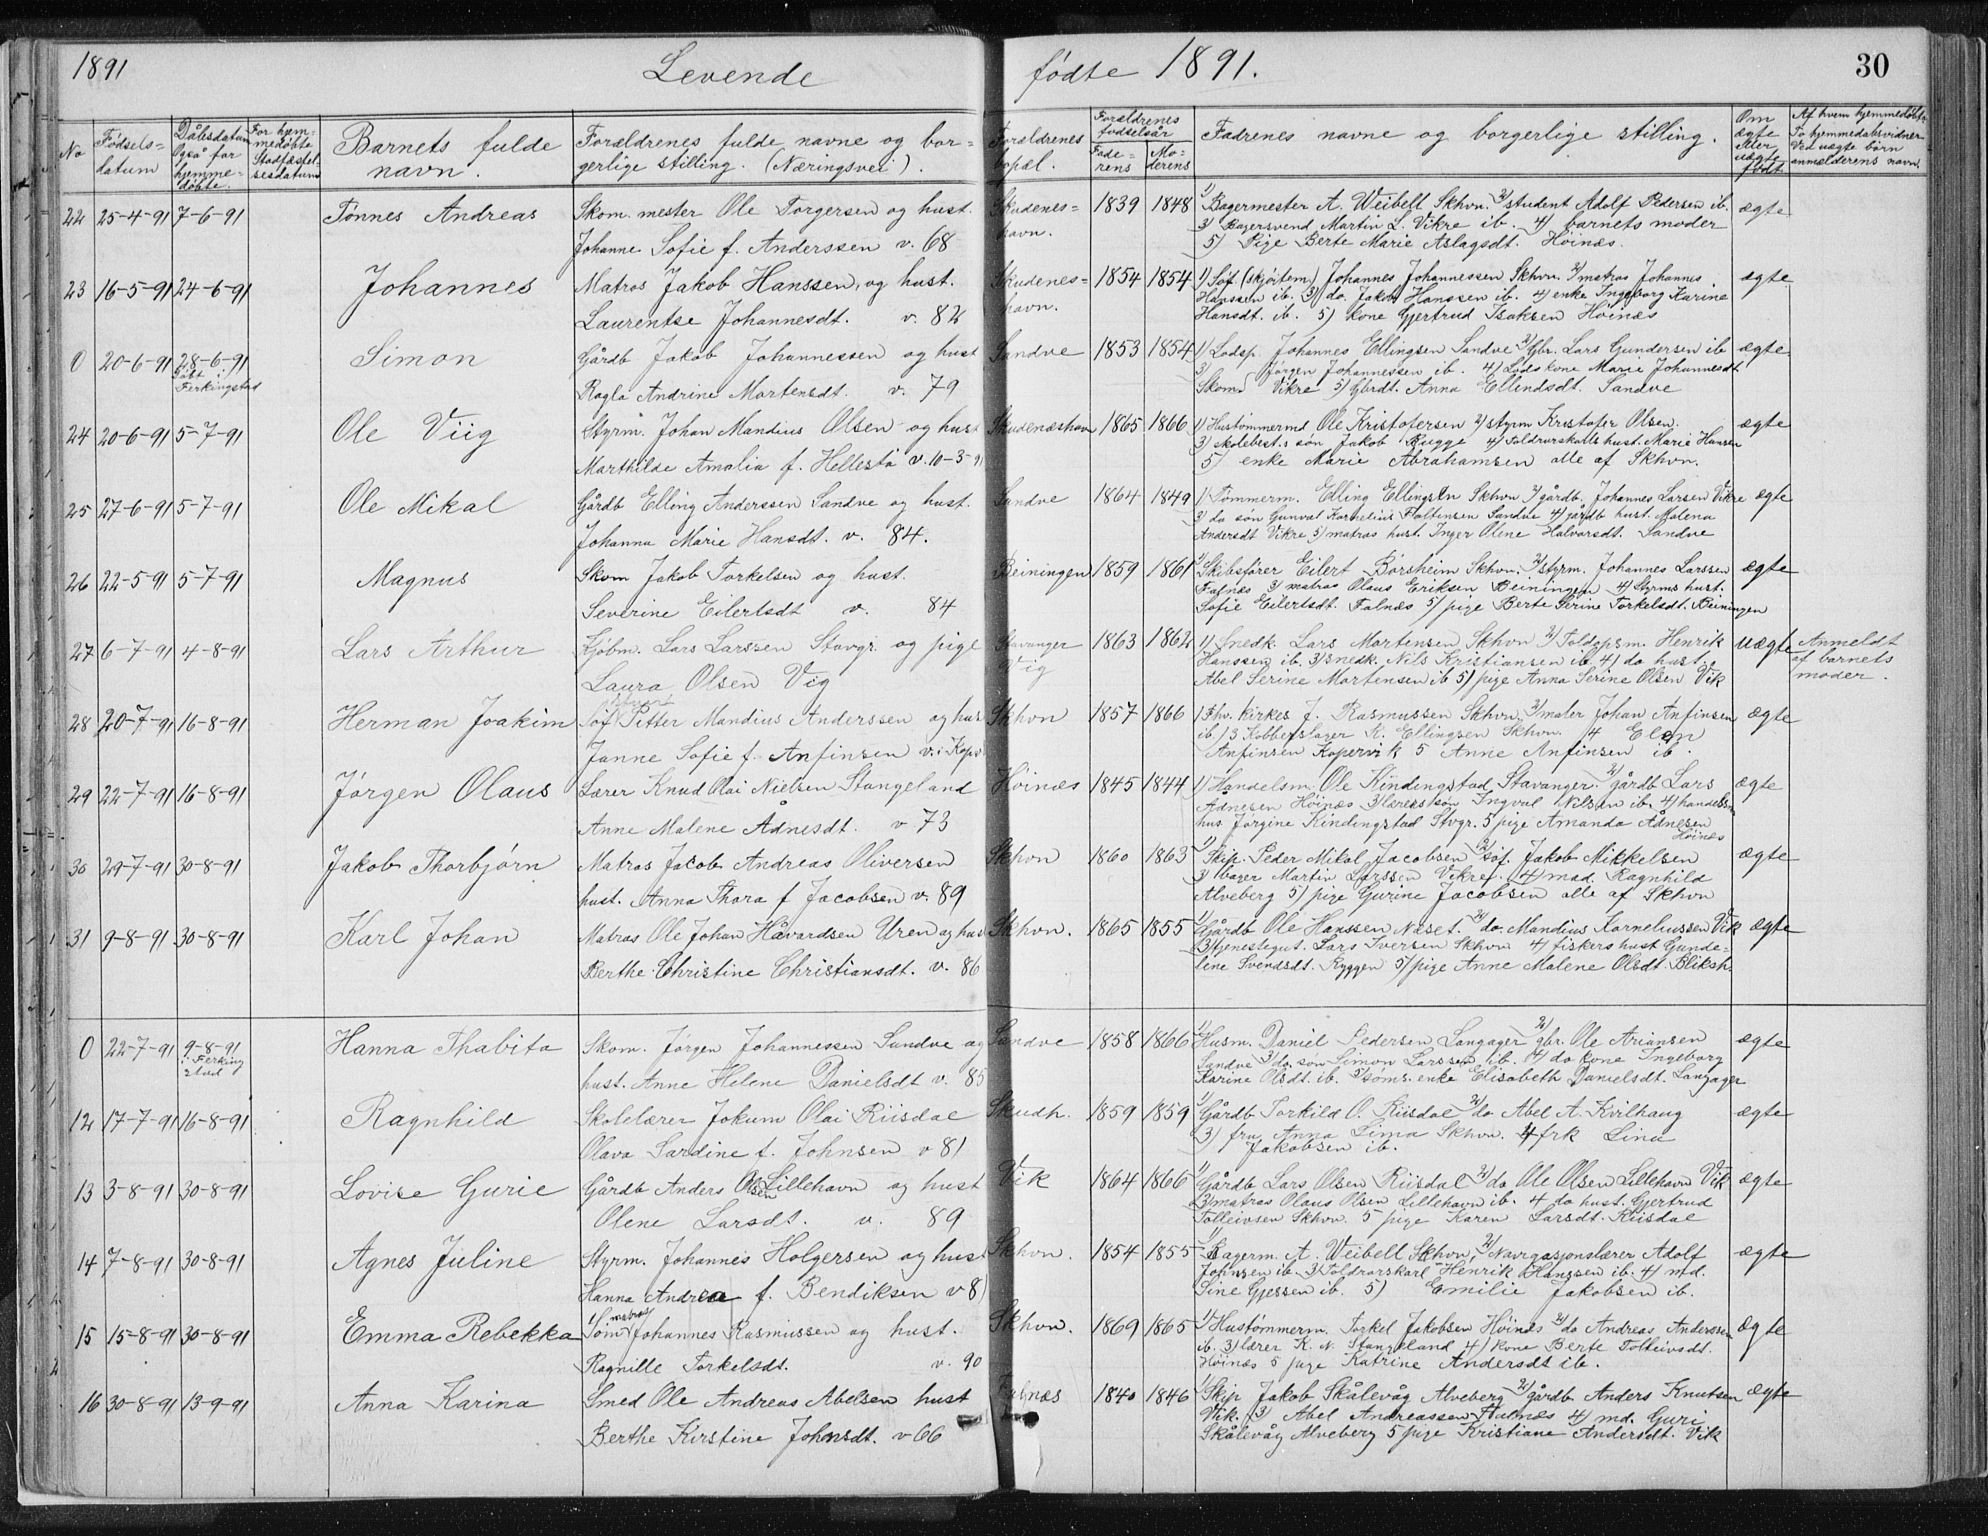 1891 Levende fødte 1891. 30
No
Fødsels-
datum
Dåbsdatum
Også for
hjemme-
døbte.
For hjem-
medøbte
Stadfæstel-
sesdatum
Barnets fulde
navn.
Forældrenes fulde navne og bor-
gerlige stilling. (Næringsvei).
Forældrenes
bopæl.
Forældrenes
fødselsår
Fade-
rens
Mo-
derens
Fadrenes navne og borgerlige stilling.
Om
ægte
eller
uægte
født
Af hvem hjemmedøbt
To hjemmedåbsvidner
Ved uægte børn
anmelderens navn.
22 25-4-91 7-6-91 Tønnes Andreas Skom. mester Ole Torgersen og hust. Skudenes- 1839 1848 1) Bagermester A. Weibell Skhvn. 2) student Adolf Pedersen ib. ægte
havn. 3) Bagersvend Martin L. Vikre ib. 4) barnets moder
Johanne Sofie f. Anderssen v. 68 5) Pige Berte Marie Aslagsdt. Høinæs.
23 16-5-91 24-6-91 Johannes Matros Jakob Hanssen, og hust. Skudenes- 1854 1854 1) Søf. (skjørtem) Johannes Johannessen Skhvn. 2) matros Johannes ægte
havn. Hanssen ib. 3) do. Jakob Hanssen ib. 4) enke Ingeborg Karine
Laurentse Johannesdt. v. 82 Hansdt. ib. 5) kone Gjertrud Isaksen Høinæs
0 20-6-91 28-6-91 Simon Gårdb Jakob Johannessen og hust Sandve 1853 1854 1) Lodsp. Johannes Ellingsen Sandve 2) Gbr. Lars Gundersen ib ægte
Døbt i
Ferkingstad 3) Jørgen Johannessen ib. 4) Lodskone Marie Johannesdt
Ragla Andrine Mortensdt. v. 79 Skom Vikre 5) Gbrdt. Anna Ellendsdt. Sandve
24 20-6-91 5-7-91 Ole Viig Styrm. Johan Mandius Olsen og hust Skudenæshavn 1865 1866 1) Hustømmermd Ole Kristofersen 2) styrm Kristofer Olsen. ægte
3) skolebest.s søn Jakob Rugge 4) Toldrorskarls hust. Marie Hansen
Marthilde Amalia f. Hellestø v. 10-3-91 5) enke Marie Abrahamsen alle af Skhvn.
25 27-6-91 5-7-91 Ole Mikal Gårdb Elling Anderssen Sandve og hust. Sandve 1864 1849 1) Tømmerm. Elling Ellingsen Skhvn 2) gårdb. Johannes Larsen Vikre ægte
3) do søn Gunval Kornelius Faltinsen Sandve 4) gårdb hust. Malena
Johanna Marie Hansdt. v. 84. Andersdt Vikre 5) matros hust. Inger Olene Halvorsdt. Sandve
26 22-5-91 5-7-91 Magnus Skom Jakob Torkelsen og hust. Beiningen 1859 1861 1) Skibsfører Eilert Børsheim Skhvn. 2) styrm. Johannes Larssen ægte
Falnæs 3) matros Olaus Eriksen Beiningen 4) Styrms hust.
Severine Eilertsdt v. 84 Sofie Eilertsdt. Falnæs 5) pige Berte Serine Torkelsdt. Beiningen
27 6-7-91 4-8-91 Lars Arthur Kjøbm. Lars Larssen Stavgr. og pige Stavanger 1863 1862 1) Snedk. Lars Mortensen Skhvn 2) Toldopsm. Henrik uægte Anmeldt
Vig Hanssen ib. 3) snedk. Nils Kristiansen ib. 4) do hust. af barnets
Laura Olsen Vig Abel Serine Mortensen ib 5) pige Anna Serine Olsen Vik moder.
28 20-7-91 16-8-91 Herman Joakim Søf Pitter Mandius Anderssen og hus Skhvn 1857 1866 1) Fhv. kirkes J. Rasmussen Skhvn. 2) maler Johan Anfinsen ægte
ib. 3 Kobberslager K. Ellingsen Skhvn. 4 Elen
Janne Sofie f. Anfinsen v. i Kopv Anfinsen Kopervik 5 Anne Anfinsen ib.
29 22-7-91 16-8-91 Jørgen Olaus Lærer Knud Olai Nielsen Stangeland Høinæs 1845 1844 1) Handelsm. Ole Kindingstad Stavanger. 2) gårdb Lars ægte
Adnesen Høinæs 3) lærers søn Ingval Nilsen ib. 4) handelsm
Anne Malene Ådnesdt. v 73 hus Jørgine Kindingstad Stvgr. 5 pige Amanda Ådnesen
Høinæs
30 29-7-91 30-8-91 Jakob Thorbjørn Matros Jacob Andreas Oliversen Skhvn 1860 1863 1) Skip. Peder Mikal Jacobsen 2) søf. Jakob Mikkelsen ægte
3) bager Martin Larssen Vikre. 4) mad. Ragnhild
hust. Anna Thora f Jacobsen v. 89 Alveberg 5) pige Gurine Jacobsen alle af Skhvn
31 9-8-91 30-8-91 Karl Johan Matros Ole Johan Håvardsen Uren og hus Skhvn. 1865 1855 1) Gårdb Ole Hanssen Næset. 2) do. Mandius Korneliussen Vik ægte
3) tjenestegut. Lars Iversen Skhvn 4) fiskers hust Gunde-
Berthe Christine Christiansdt. v. 86 lene Svendsdt. Ryggen 5) pige Anne Malene Olsdt. Bliksh.
0 22-7-91 9-8-91 Hanna Thabita Skom. Jørgen Johannessen Sandve og Sandve 1858 1866 1) Husm. Daniel Pedersen Langager 2) gbr. Ole Ariansen ægte
i Ferking
stad Sandve 3) do. søn Simon Larssen ib. 4) do kone Ingeborg
hust. Anne Helene Danielsdt v. 85 Karine Olsdt. ib. 5) søms. enke Elisabeth Danielsdt. Langager
12 17-7-91 16-8-91 Ragnhild Skolelærer Jokum Olai Riisdal Skudh. 1859 1859 1) Gårdb Torkild O. Riisdal 2) do Abel A. Kvilhaug ægte
3) fru Anna Lima Skhvn. 4 frk Lina
Olava Sardine f. Johnsen v 81 Jakobsen ib.
13 3-8-91 30-8-91 Lovise Gurie Gårdb Anders Olsen Lillehavn og hust Vik 1864 1866 1) Gårdb Lars Olsen Riisdal 2) do Ole Olsen Lillehavn Vik ægte
3) matros Olaus Olsen Lillehavn ib. 4 do hust. Gjertrud
Olene Larsdt. v. 89 Tolleivsen Skhvn. 5 pige Karen Larsdt. Riisdal
14 7-8-91 30-8-91 Agnes Juline Styrm. Johannes Holgersen og hust Skhvn. 1854 1855 1) Bagerm. A. Weibell Skhvn, 2) Navigasjonslærer Adolf ægte
Johnsen ib. 3) Toldrorskarl Henrik Hanssen ib. 4) md.
Hanna Andrea f. Bendiksen v 81 Sine Gjessen ib. 5) Emilie Jakobsen ib.
matros
15 15-8-91 30-8-91 Emma Rebekka Tøm Johannes Rasmussen og hust. Skhvn. 1869 1865 1) Hustømmerm. Torkel Jakobsen Høinæs 2) do Andreas Anderssen ægte
ib. 3) lærer K. N. Stangeland 4) kone Berte Tolleivsdt.
Ragnille Torkelsdt. v. 90 Høinæs 5 pige Katrine Andersdt ib.
16 30-8-91 13-9-91 Anna Karina Smed Ole Andreas Abelsen hust Falnæs 1840 1846 1) Skip Jakob Skålevåg Alveberg 2) gårdb. Anders Knutsen ægte
Vik. 3) Abel Andreassen Falnæs 4) md. Guri
Berthe Kirstine Johnsdt. v 66 Skålevåg Alveberg 5 pige Kristiane Andersdt. Vik